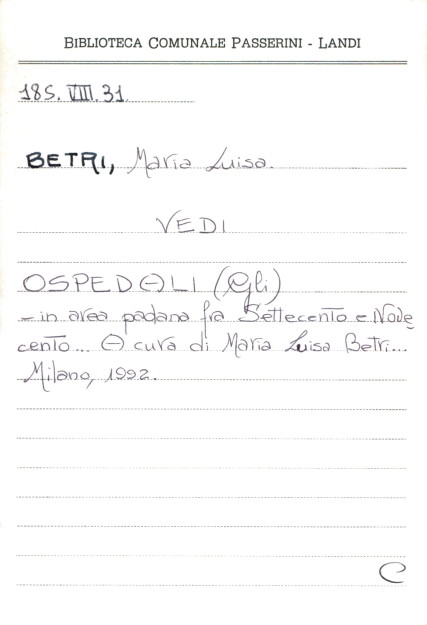 BIBLIOTECA COMUNALE PASSERINI - LANDI
185. VIII. 31.
BETRI, Maria Luisa.
VEDI
OSPEDALI (Gli)
- in area padana fra Settecento e Nove
cento... A cura di Maria Luisa Betri...
Milano, 1992.
C